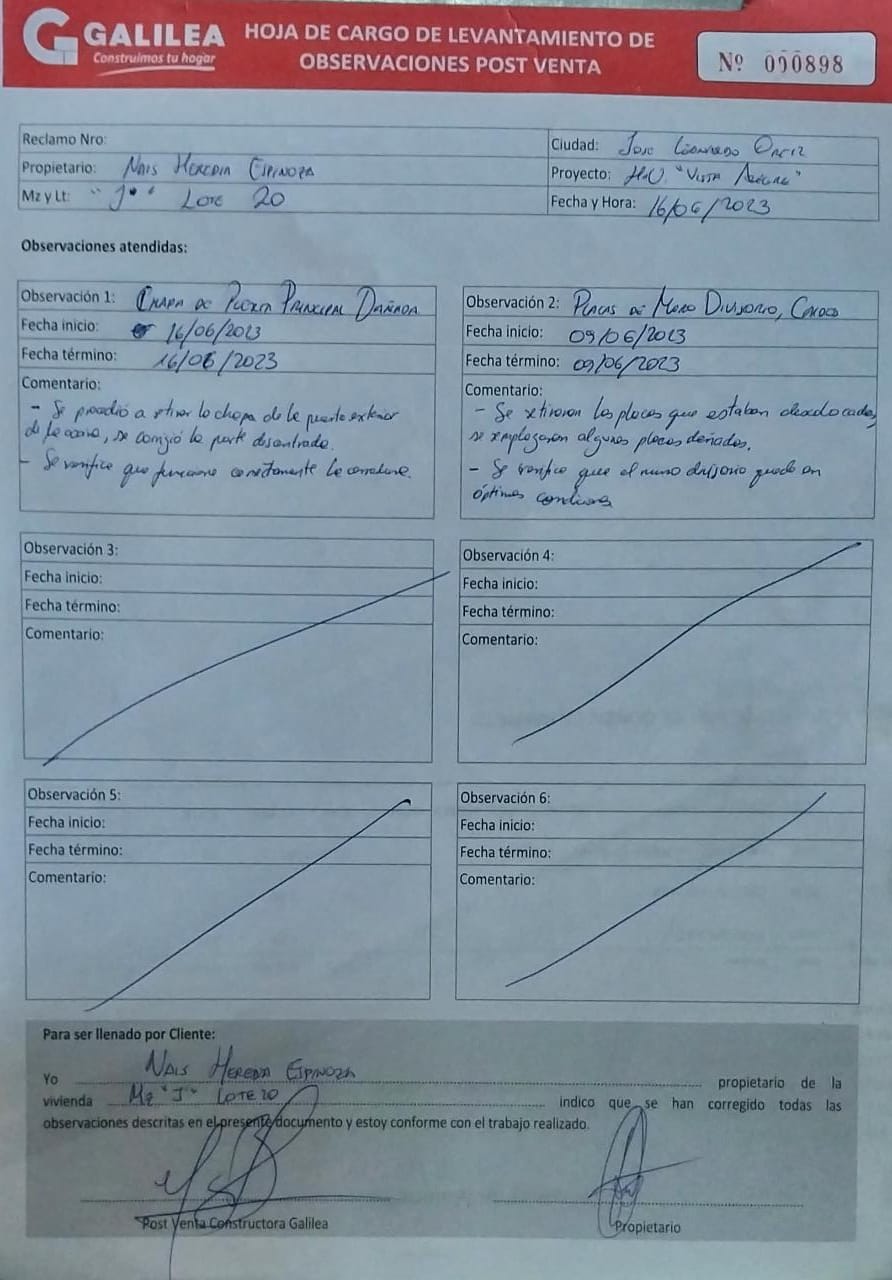 GALILEA
Construimos tu hogar
HOJA DE CARGO DE LEVANTAMIENTO DE
OBSERVACIONES POST VENTA
Nº 000898
Reclamo Nro:
Ciudad: Jose Leonardo Ortiz
Propietario: Nais Heredia Espinoza
Proyecto: H.U. "Vista Alegre"
Mz y Lt: "J" Lote 20
Fecha y Hora: 16/06/2023
Observaciones atendidas:
Observación 1: Chapa de Puerta Principal Dañada
Fecha inicio: 16/06/2023
Fecha término: 16/06/2023
Comentario:
- Se procedió a retirar la chapa de la puerta exterior
de la casa, se corrigió la parte descentrada.
- Se verifico que funcione correctamente la cerradura.
Observación 2: Placas de Muro Divisorio, Cerco
Fecha inicio: 09/06/2023
Fecha término: 09/06/2023
Comentario:
- Se retiraron las placas que estaban
se remplazaron algunas placas dañadas.
- Se verifico que el muro divisorio quede en
óptimas condiciones
Observación 3:
Fecha inicio:
Fecha término:
Comentario:
Observación 4:
Fecha inicio:
Fecha término:
Comentario:
Observación 5:
Fecha inicio:
Fecha término:
Comentario:
Observación 6:
Fecha inicio:
Fecha término:
Comentario:
Para ser llenado por Cliente:
Yo Nais Heredia Espinoza propietario de la
vivienda Mz "J" Lote 20 indico que se han corregido todas las
observaciones descritas en el presente documento y estoy conforme con el trabajo realizado.
Post Venta Constructora Galilea
Propietario